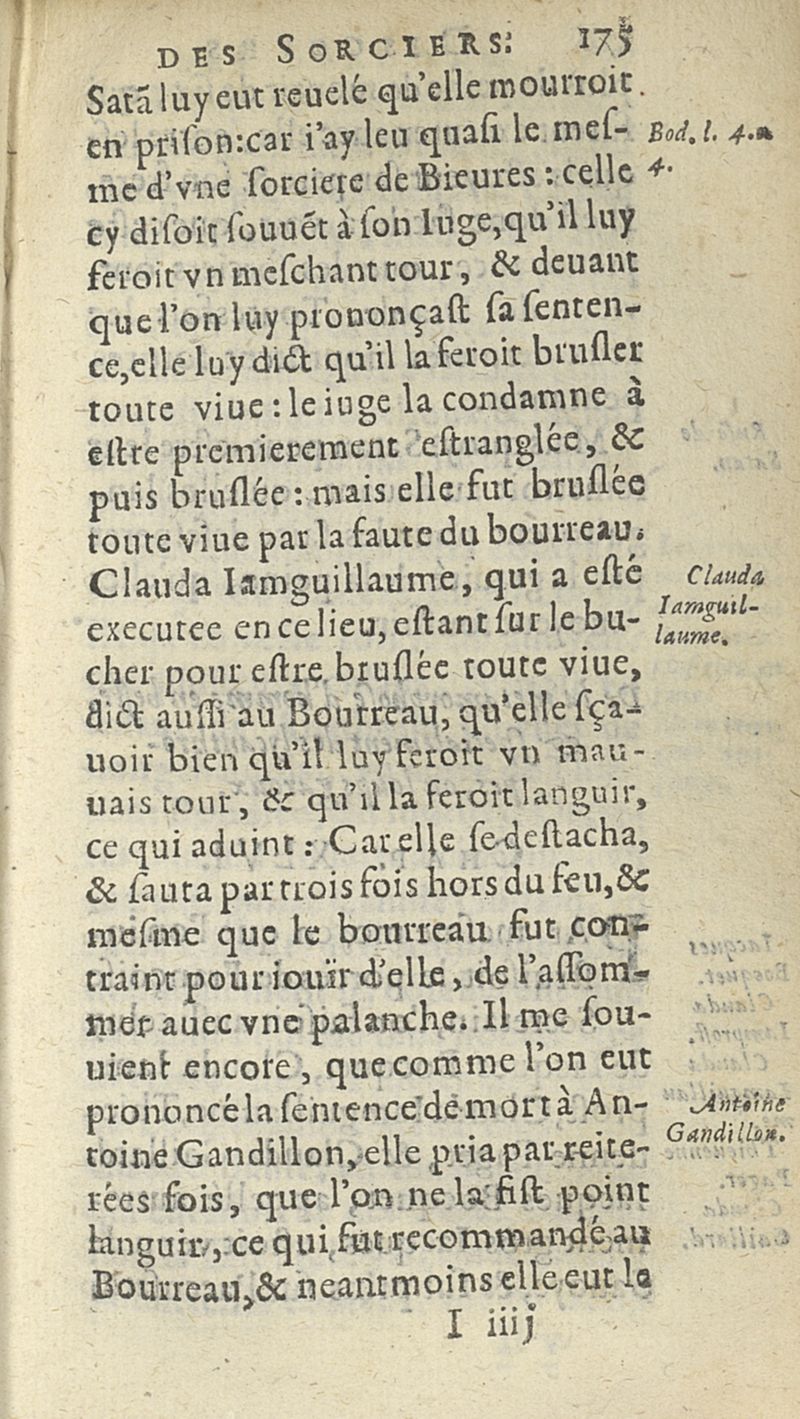 DES SORCIERS. 175
Satã luy eut reuelé qu'elle mourroit
en priſon:car i'ay leu quaſi le meſ-
Bod. l. 4. c.
4.
me d'vne ſorciere de Bieures : celle
cy diſoit ſouuẽt à ſon Iuge, qu'il luy
feroit vn meſchant tour, & deuant
que l'on luy prononçaſt ſa ſenten-
ce, elle luy dict qu'il la feroit bruſler
toute viue : le iuge la condamne à
eſtre premierement eſtranglée, &
puis bruſlée : mais elle fut bruſlée
toute viue par la faute du bourreau.
Clauda Iamguillaume, qui a eſté
Clauda
Iamguil-
laume.
executee en ce lieu, eſtant ſur le bu-
cher pour eſtre bruſlée toute viue,
dict auſſi au Bourreau, qu'elle ſça-
uoir bien qu'il luy feroit vn mau-
uais tour, & qu'il la feroit languir,
ce qui aduint : Car elle ſe deſtacha,
& ſauta par trois fois hors du feu, &
meſme que le bourreau fut con-
traint pour iouïr d'elle, de l'aſſom-
mer auec vne palanche. Il me ſou-
uient encore, que comme l'on eut
prononcé la ſentence de mort à An-
Antoine
Gandillon.
toine Gandillon, elle pria par reite-
rées fois, que l'on ne la fiſt point
languir, ce qui fut recommandé au
Bourreau, & neantmoins elle eut la
I iiij